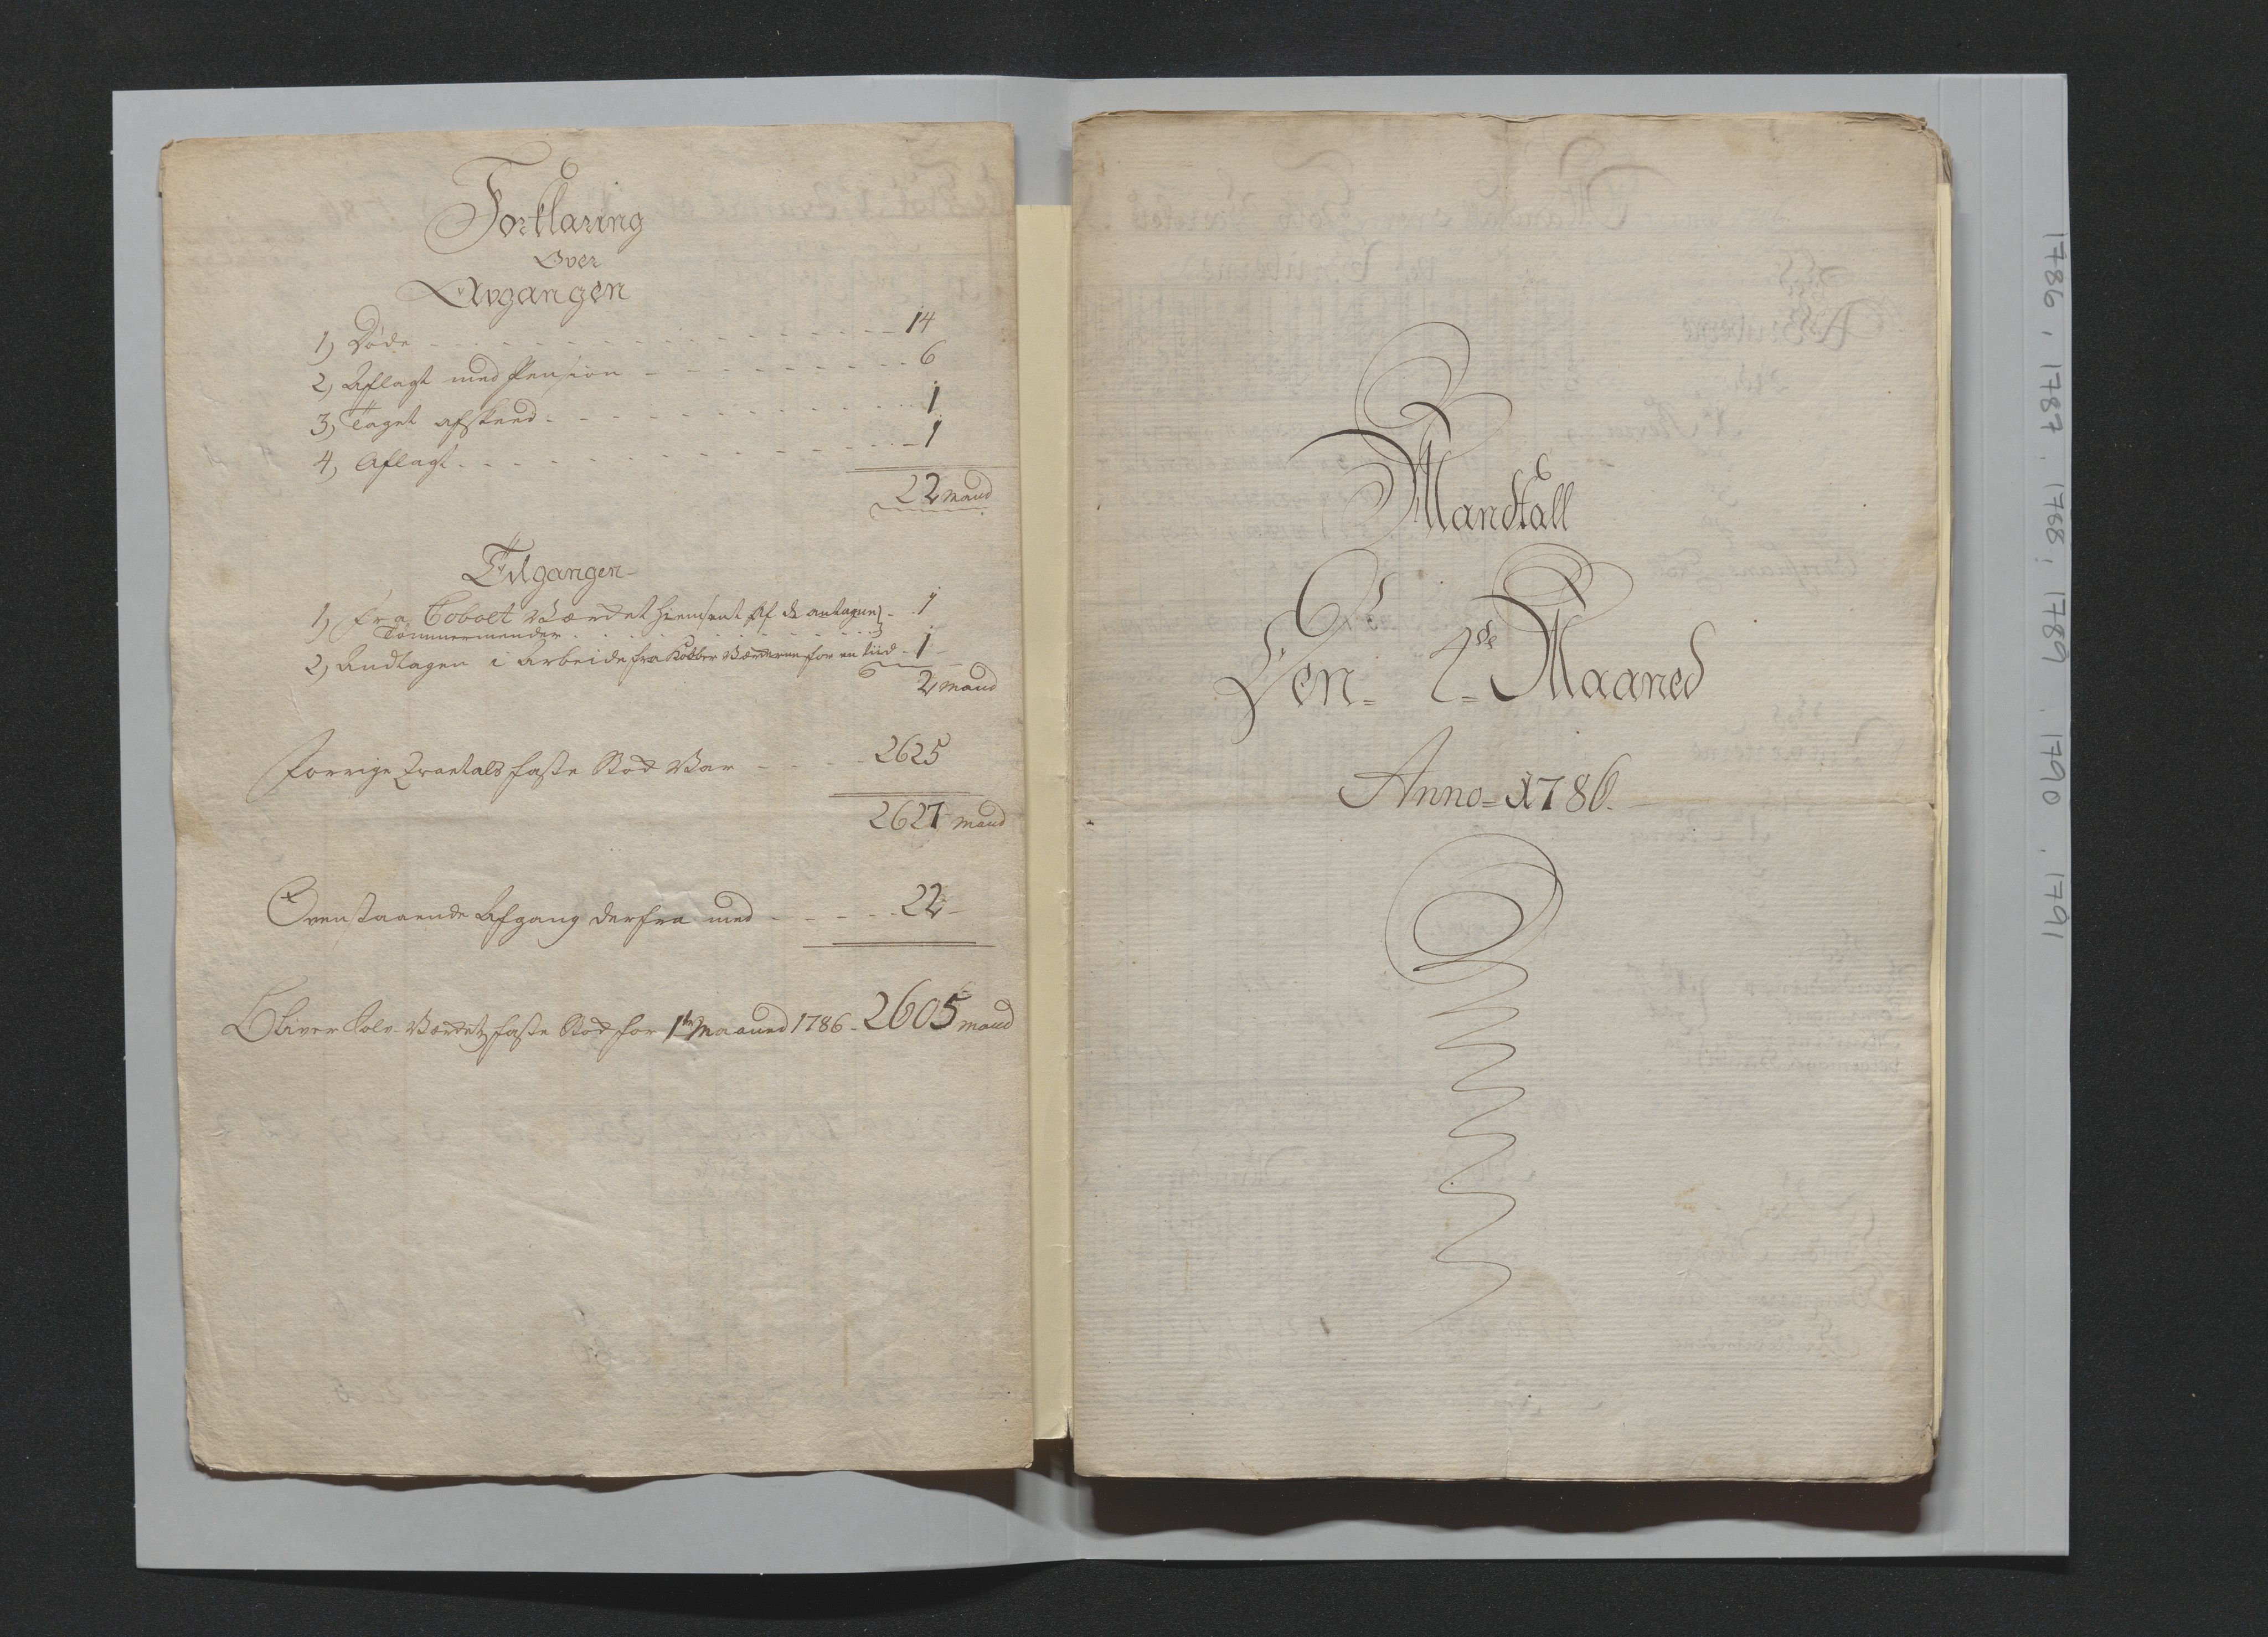 Forklaring
Over
Avgangen
1) Døde - - - 14
2) Aflagt med Pension - - - 6
3) Taget afskeed - - - 1
4) Aflagt - - - 1
22 mand
Tilgangen
1) Fra Cobolt Værdet hiemsent af de antagne - 1
Tømmermænder
2) Andtagen i Arbeide fra Kobber Værderne for en tiid - 1
2 mand
Forrige Qvartals faste Stok Var - - - 2625
2627 mand
Ovenstaaende Afgang derfra med - - - 22
Bliver Sølv-Værdets faste Stok for 1te Maaned 1786 - 2605 mand
Mandtall
Den 2de Maaned
Anno 1786.
1786, 1787, 1788, 1789, 1790, 1791